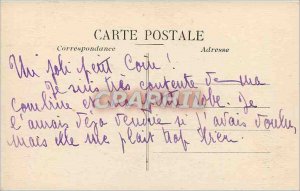 CARTE POSTALE
Correspondance
Adresse
Un joli petit Coin !
Je suis très contente de ma
combine et robe. Je
l'aurais déjà vendue si j'avais voulu
mais elle me plait trop bien.